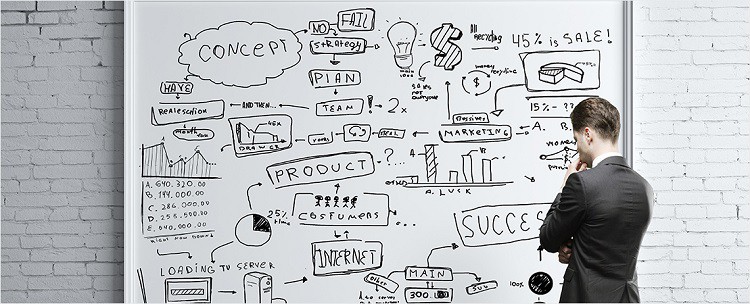 CONCEPT
NO
FAIL
STRATEGY
PLAN
TEAM
!
2x
AND THEN...
HAVE
REALESATION
45% is SALE!
15% - ??
A. B.
MARKETING
DEAL
PRODUCT
?...
A. LUCK
A. 640.320.00
B. 144.000.00
C. 286.000.00
D. 255.500.00
E. 640.000.00
25%
time
COSTUMERS
...
INTERNET
SUCCES
LOADING TO SERVER
MAIN
Other
SUB
300.
100%